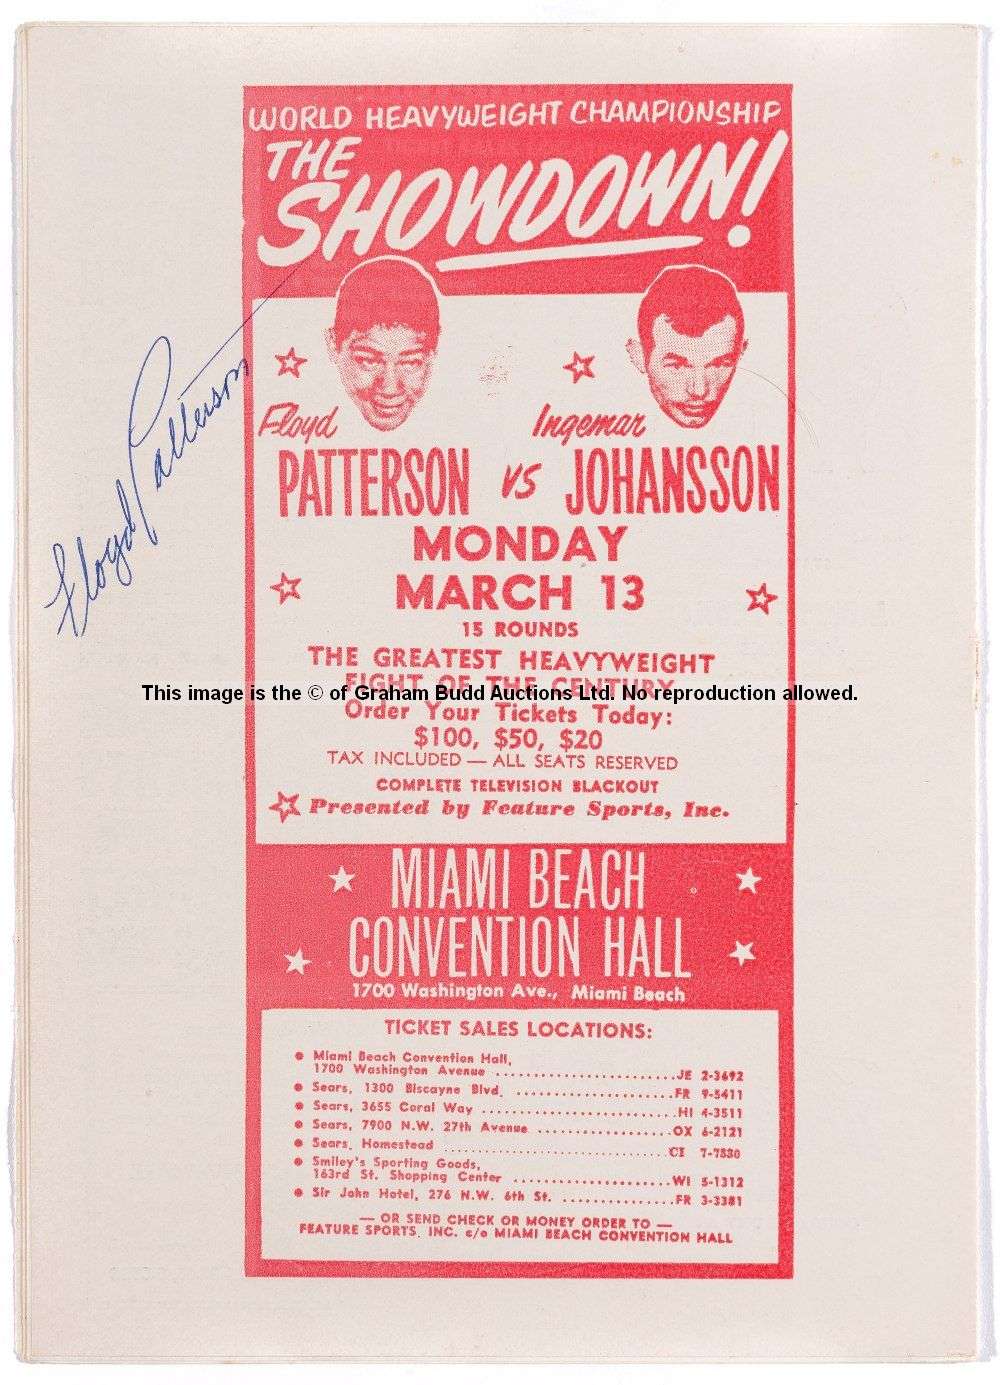 WORLD HEAVYWEIGHT CHAMPIONSHIP
THE
SHOWDOWN!
Floyd Patterson
Floyd
PATTERSON
vs
Ingemar
JOHANSSON
MONDAY
MARCH 13
15 ROUNDS
THE GREATEST HEAVYWEIGHT
FIGHT OF THE CENTURY
This image is the © of Graham Budd Auctions Ltd. No reproduction allowed.
Order Your Tickets Today:
$100, $50, $20
TAX INCLUDED — ALL SEATS RESERVED
COMPLETE TELEVISION BLACKOUT
Presented by Feature Sports, Inc.
MIAMI BEACH
CONVENTION HALL
1700 Washington Ave., Miami Beach
TICKET SALES LOCATIONS:
● Miami Beach Convention Hall,
1700 Washington Avenue ........................JE 2-3692
● Sears, 1300 Biscayne Blvd. .....................FR 9-5411
● Sears, 3655 Coral Way ..........................HI 4-3511
● Sears, 7900 N.W. 27th Avenue ..................OX 6-2121
● Sears, Homestead ..............................CI 7-7830
● Smiley's Sporting Goods,
163rd St. Shopping Center ......................WI 5-1312
● Sir John Hotel, 276 N.W. 6th St. ...............FR 3-3381
— OR SEND CHECK OR MONEY ORDER TO —
FEATURE SPORTS, INC. c/o MIAMI BEACH CONVENTION HALL